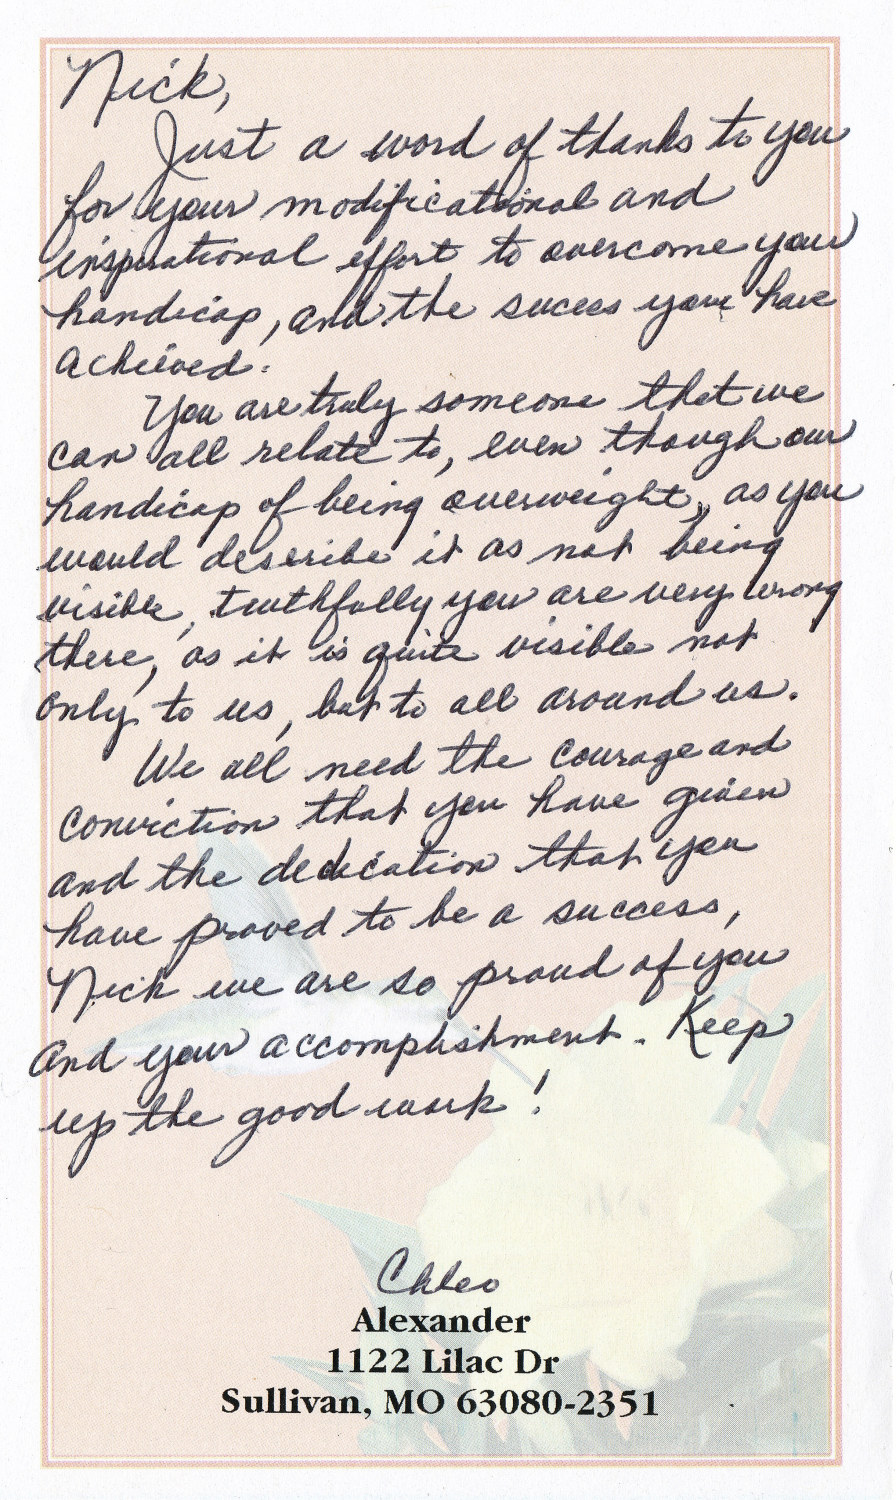 Nick,
Just a word of thanks to you
for your modificational and
inspirational effort to overcome your
handicap, and the succes you have
achieved.
You are truly someone that we
can all relate to, even though our
handicap of being overweight, as you
would describe it as not being
visible, truthfully you are very wrong
there, as it is quite visible not
only to us, but to all around us.
We all need the courage and
conviction that you have given
and the dedication that you
have proved to be a success,
Nick we are so proud of you
and your accomplishment. Keep
up the good work!
Chleo
Alexander
1122 Lilac Dr
Sullivan, MO 63080-2351